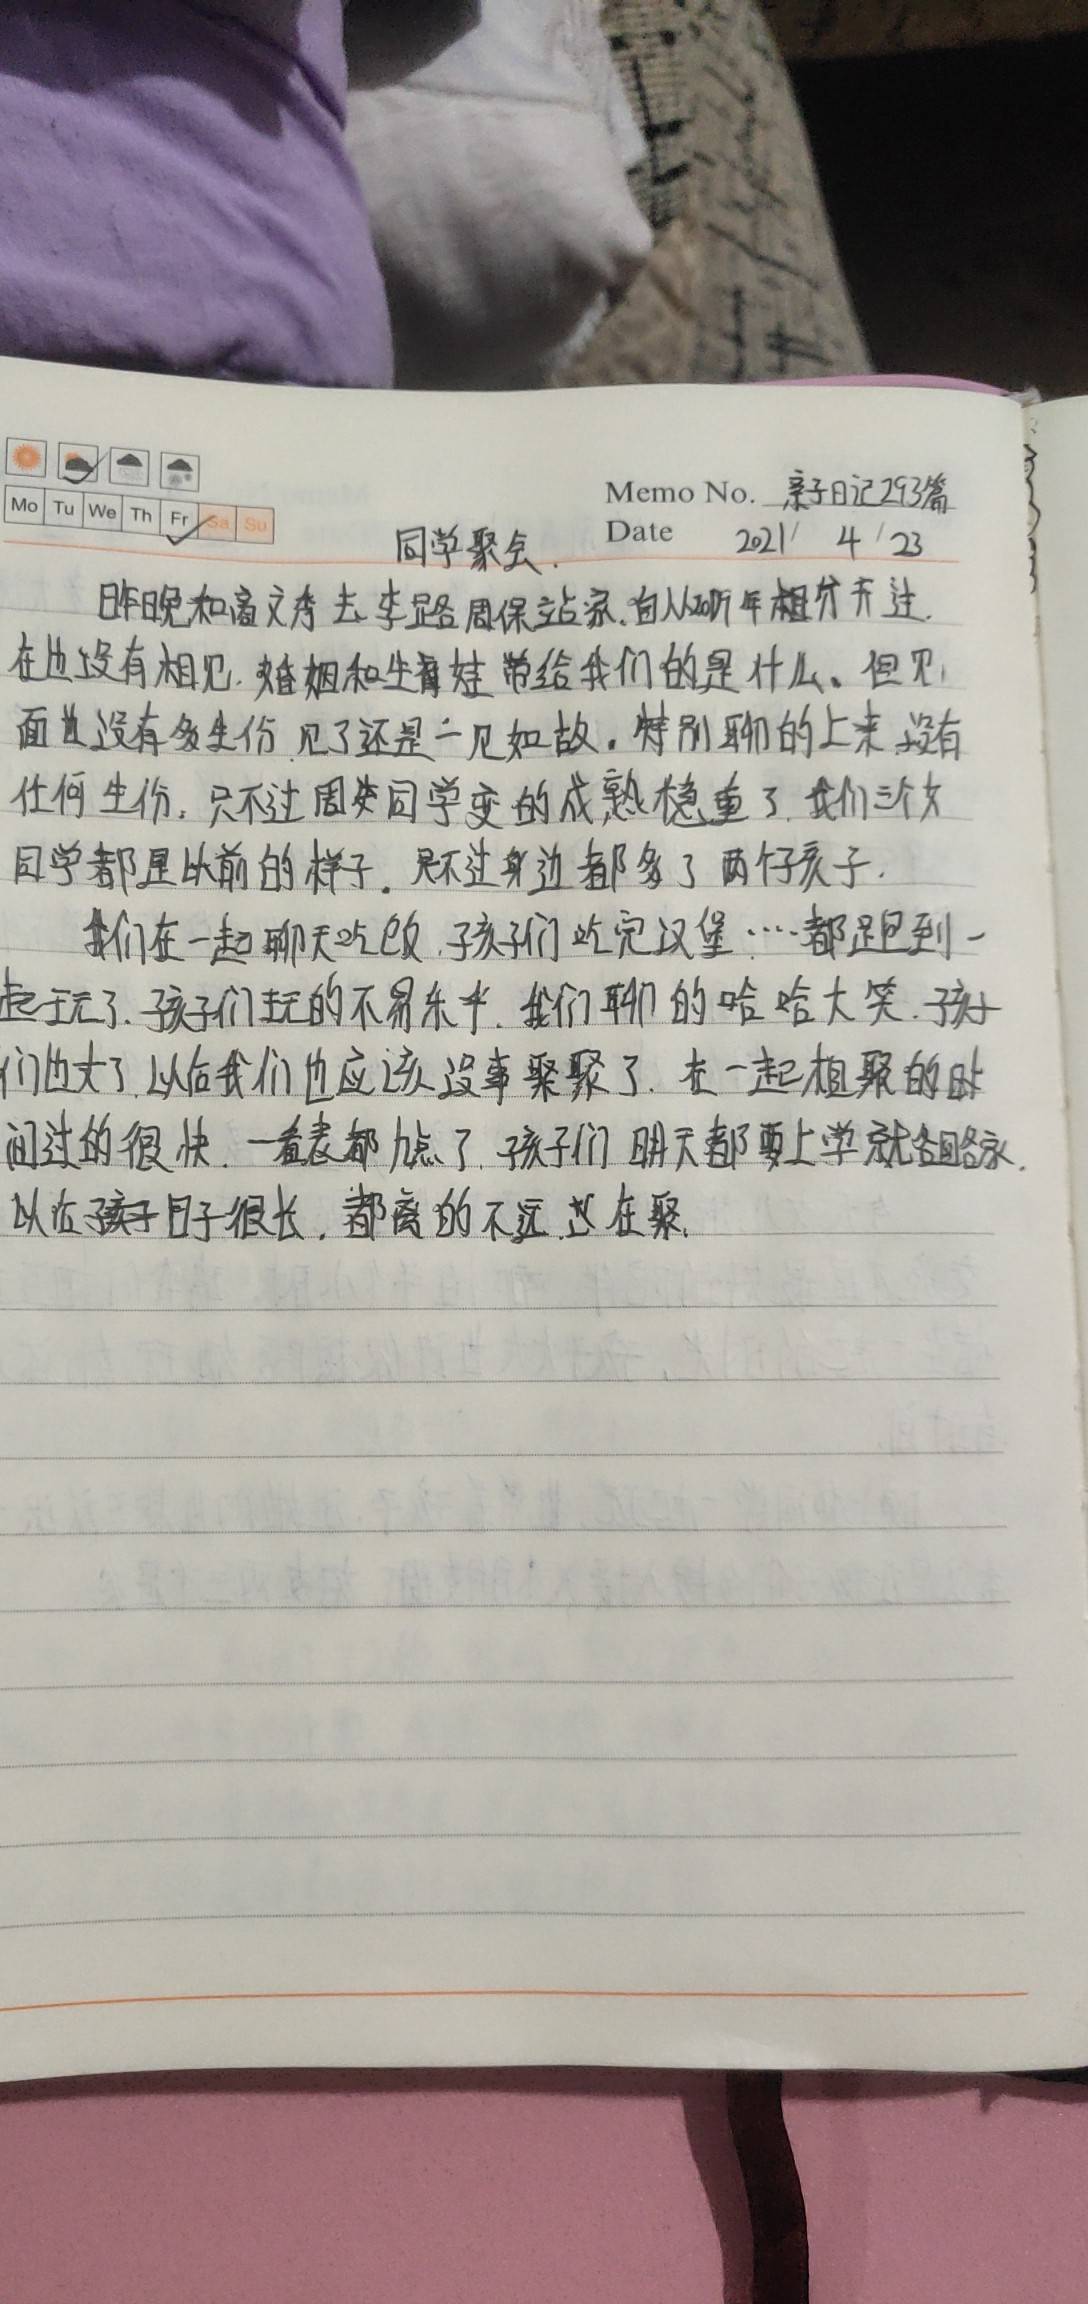 Mo Tu We Th Fr Sa Su
Memo No. 亲子日记293篇
Date 2021/ 4 /23
同学聚会.
昨晚和高文秀去李路周保站家.自从年相分开过.
在也没有相见.婚姻和生育娃带给我们的是什么。但见
面并没有多生份 见了还是一见如故。特别聊的上来没有
任何生份。只不过周类同学变的成熟稳重了.我们三个女
同学都是以前的样子。只不过身边都多了两仔孩子.
我们在一起聊天吃饭.子孩子们吃完汉堡……都跑到一
起玩了.孩子们玩的不易乐乎.我们聊的哈哈大笑.子孩子
们也大了.以后我们也应该没事聚聚了.在一起相聚的时
间过的很快.一看表都九点了.孩子们明天都要上学就各回各家.
以后日子很长.都离的不远.在聚.